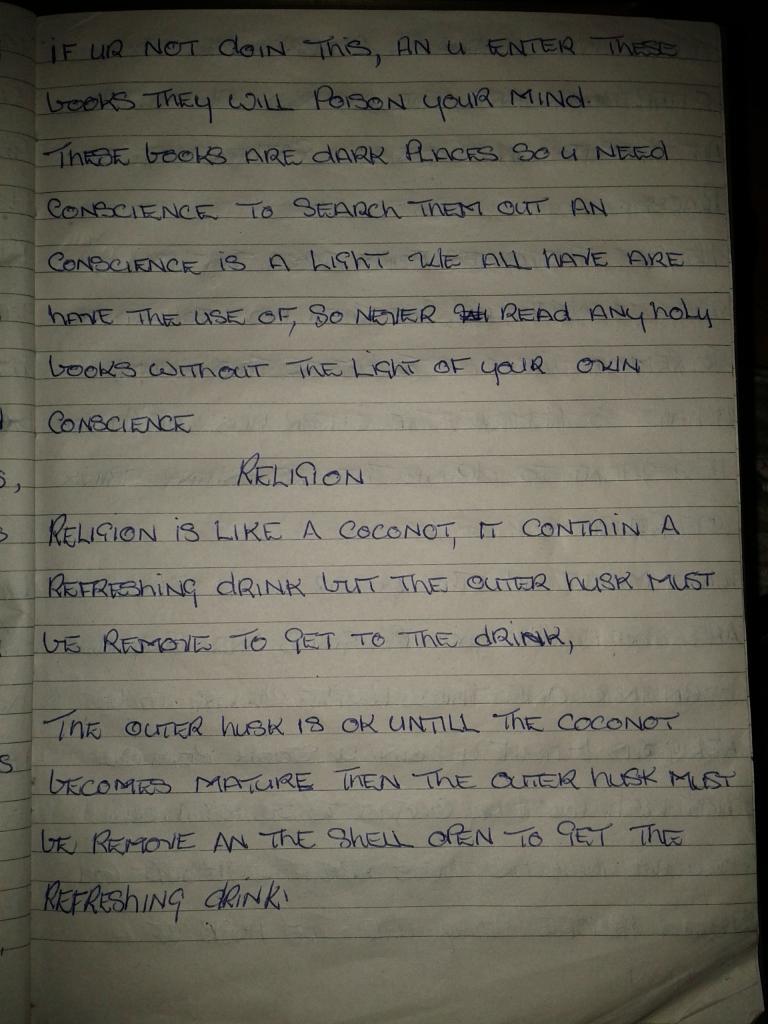 IF UR NOT doiN This, AN U ENTER THESE
books THEY WILL POISON YOUR MIND.
THESE books ARE dARK PLACES SO U NEED
CONSCIENCE TO SEARCH THEM OUT AN
CONSCIENCE IS A LIGHT WE ALL HAVE ARE
HAVE THE USE OF, SO NEVER READ ANY holy
books WITHOUT THE LIGHT OF YOUR OWN
CONSCIENCE
RELIGION
RELIGION IS LIKE A COCONOT, IT CONTAIN A
REFREShING dRINK bUT THE OUTER hUSK MUST
bE REMOVE TO GET TO THE dRINK,
THE OUTER hUSK IS OK UNTILL THE COCONOT
bECOMES MATURE THEN THE OUTER hUSK MUST
bE REMOVE AN THE ShELL OPEN TO GET THE
REFREShING dRINK!